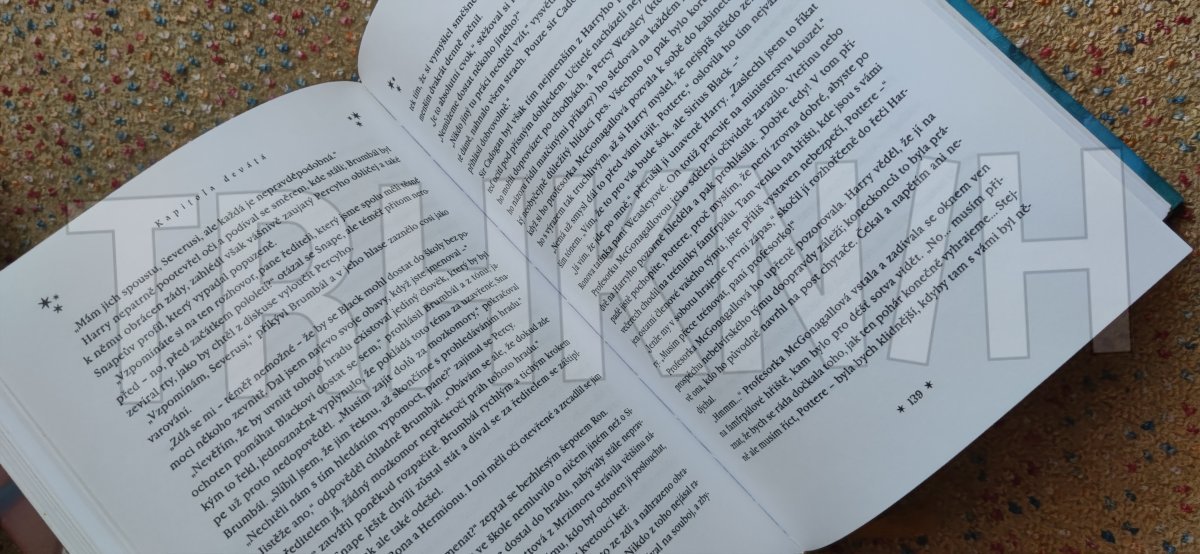 Kapitola devátá
„Mám jich spoustu, Severusi, ale každá je nepravděpodobná."
Harry nepatrně pootevřel oči a podíval se směrem, kde stáli; Brumbál byl
k němu obrácený zády, zahlédl však vážně zaujatý Percyho obličej a také
Snapeův profil, který vypadal popuzeně.
„Vzpomínáte si na ten rozhovor, pane řediteli, který jsme spolu měli těsně
před – no, před začátkem pololetí?" otázal se Snape, ale téměř přitom nero-
zevíral rty, jako by chtěl z diskuse vyloučit Percyho.
„Vzpomínám, Severusi," přikývl Brumbál a v jeho hlase zaznělo cosi jako
varování.
„Zdá se mi – téměř nemožné – že by se Black mohl dostat do školy bez po-
moci někoho zevnitř. Dal jsem najevo svoje obavy, když jste jmenoval –"
„Nevěřím, že by uvnitř tohoto hradu existoval jediný člověk, který by byl
ochoten pomáhat Blackovi dostat se sem," prohlásil Brumbál a z tónu, ja-
kým to řekl, jednoznačně vyplynulo, že pokládá toto téma za uzavřené. Sna-
pe už proto nedopověděl. „Musím zajít dolů za mozkomory," pokračoval
Brumbál. „Slíbil jsem, že jim řeknu, až skončíme s prohledáváním hradu."
„Nechtěli nám s tím hledáním vypomoct, pane?" zajímal se Percy.
„Jistěže ano," odpověděl chladně Brumbál. „Obávám se ale, že dokud zde
ředitelem já, žádný mozkomor nepřekročí práh tohoto hradu."
se zatvářil poněkud rozpačitě. Brumbál rychlým a tichým krokem
Snape ještě chvíli zůstal stát a díval se za ředitelem se
ak ale také odešel.
Rona a Hermionu. I oni měli oči otevřené a zrcadlil se jim
menat?" zeptal se bezhlesým šeptem Ron.
ve škole nemluvilo o ničem jiném než o Si-
dostal do hradu, nabývaly stále neprav-
ottová z Mrzimoru strávila většinu ná-
mu, kdo byl ochoten ji poslouchat,
kvetoucí keř.
ze zdi a nahrazeno obra-
Nikdo z toho nejásal ra-
val na souboj, a aby-
tím, že si vymýšlel směšné
dvakrát denně měnil.
„Je to absolutní cvok," stěžoval si
„Nemůžeme dostat někoho jiného?"
„Nikdo jiný tu práci nechtěl vzít," vysvětlil
nahnalo všem strach. Pouze sir Cado-
přihlásil dobrovolně."
Sir Cadogan byl však tím nejmenším z Harryho
pod přísným dohledem. Učitelé nacházeli nej-
mohli doprovázet po chodbách, a Percy Weasley (kte-
matčinými příkazy) ho sledoval na každém
neobyčejně důležitý hlídací pes. Všechno to pak bylo koru-
když si ho profesorka McGonagallová pozvala k sobě do kabinetu
ho s výrazem tak truchlivým, až si Harry myslel, že nejspíš někdo ze-
„Nemá už smysl to před vámi tajit, Pottere," oslovila ho tím nejváž-
tónem. „Vím, že to pro vás bude šok, ale Sirius Black –"
„Já vím, že jde po mně," přerušil ji unaveně Harry. „Zaslechl jsem to říkat
tatínka paní Weasleyové. On totiž pracuje na ministerstvu kouzel."
Profesorku McGonagallovou jeho sdělení očividně zarazilo. Vteřinu nebo
na Harryho pozorně hleděla a pak prohlásila: „Dobře tedy! V tom pří-
padě jistě pochopíte, Pottere, proč myslím, že není zrovna dobré, abyste po
večerech chodil na tréninky famfrpálu. Tam venku na hřišti, kde jsou s vámi
ostatní členové vašeho týmu, jste příliš vystaven nebezpečí, Pottere –"
„Ale my v sobotu hrajeme první zápas," skočil jí rozhořčeně do řeči Har-
ry. „Musím přece trénovat, paní profesorko!"
Profesorka McGonagallová ho upřeně pozorovala. Harry věděl, že jí na
prospěchu nebelvírského týmu doopravdy záleží; koneckonců to byla prá-
vě ona, kdo ho původně navrhl na post chytače. Čekal a napětím ani ne-
dýchal.
„Hmmm..." Profesorka McGonagallová vstala a zadívala se oknem ven
na famfrpálové hřiště, kam bylo pro déšť sotva vidět. „No... musím při-
znat, že bych se ráda dočkala toho, jak ten pohár konečně vyhrajeme... Stej-
ně ale musím říct, Pottere – byla bych klidnější, kdyby tam s vámi byl ně-
139
TRHKNIH